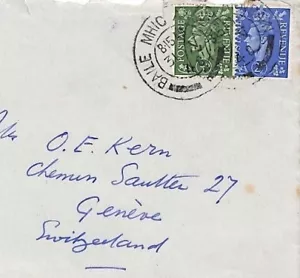 BAILE MHIC
815
POSTAGE REVENUE
REVENUE
O. E. Kern
Chemin Sautter 27
Genève
Switzerland